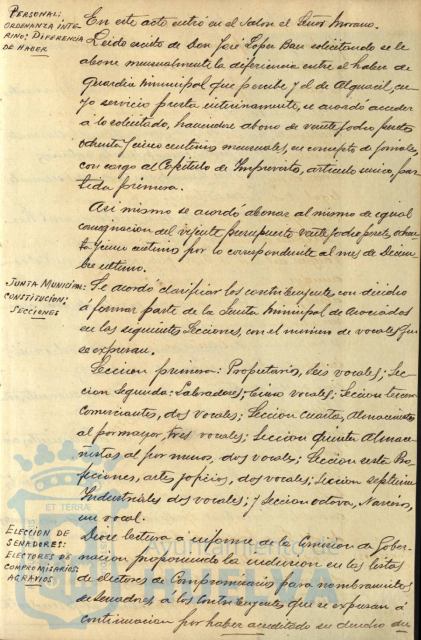 PERSONAL:
ORDENANZA INTE-
RINO: DIFERENCIA
DE HABER
En este acto entró en el Salon el Señor Moreno.
Leido escrito de Don José Lopez solicitando se le
abone mensualmente la diferencia entre el haber de
Guardia Municipal que percibe y el de Alguacil, cu-
yo servicio presta interinamente, se acordó acceder
á lo solicitado, haciendose abono de veinte y ocho pesetas
ochenta y cinco centimos mensuales, en concepto de jornales,
con cargo al Capítulo de Imprevistos, artículo unico, par-
tida primera.
Asi mismo se acordó abonar al mismo de igual
consignacion del vigente presupuesto veinte y ocho pesetas ochen-
ta y cinco centimos por lo correspondiente al mes de Diciem-
bre ultimo.
JUNTA MUNICIPAL:
CONSTITUCION:
SECCIONES
Se acordó clasificar los contribuyentes con derecho
á formar parte de la Junta Municipal de Asociados
en las siguientes Secciones, con el numero de vocales que
se expresan.
Seccion primera: Propietarios, seis vocales; Sec-
cion Segunda: Labradores, cinco vocales; Seccion tercera
Comerciantes, dos vocales; Seccion cuarta, Almacenistas
al por mayor, tres vocales; Seccion quinta Almace-
nistas al por menor, dos vocales; Seccion sesta Pro-
fesiones, artes y oficios, dos vocales; Seccion septima
Industriales dos vocales; y Seccion octava, Navieros,
un vocal.
ELECCION DE
SENADORES:
ELECTORES DE
COMPROMISARIOS:
AGRAVIOS
Diose lectura a informe de la Comision de Gober-
nacion proponiendo la inclusion en las listas
de electores de Compromisarios para nombramientos
de Senadores á los Contribuyentes que se expresan á
continuacion por haber acreditado su derecho
ET TERRA
Ayuntamiento de